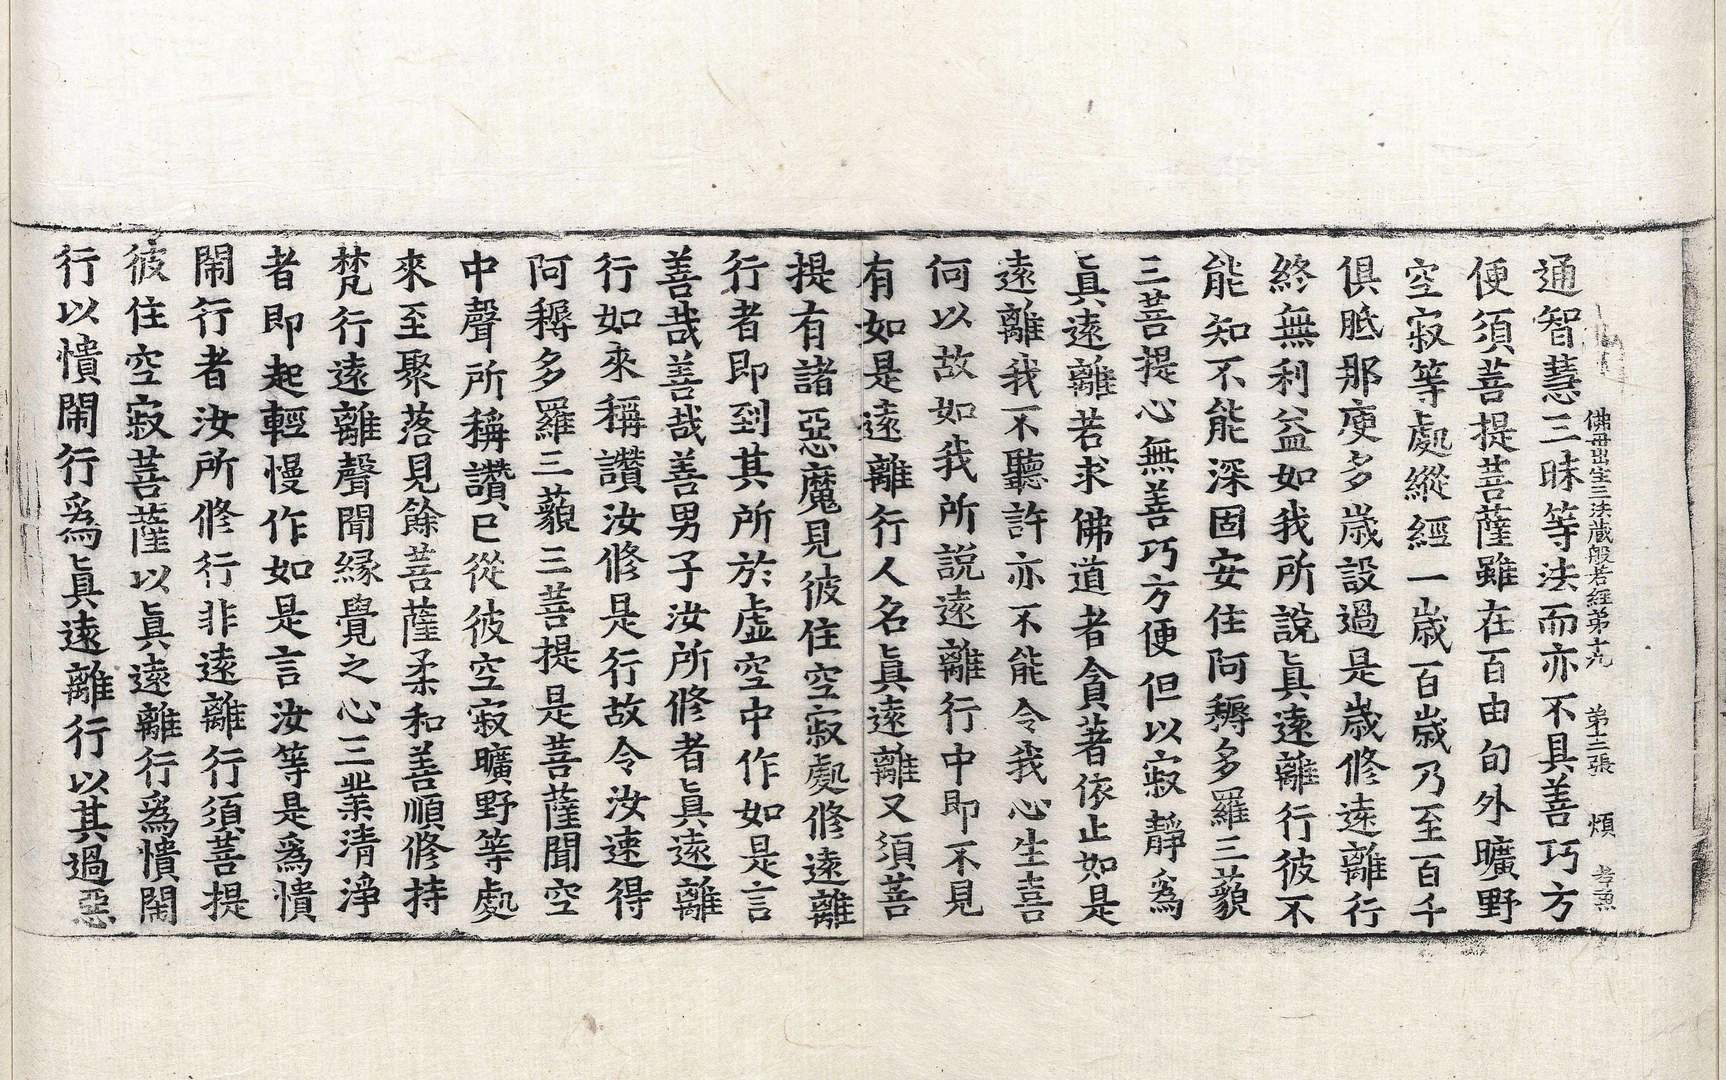 佛母出生三法藏般若經第十九 第三張 煩 孝兼
通智慧三昧等法而亦不具善巧方
便須菩提菩薩雖在百由旬外曠野
空寂等處縱經一歲百歲乃至百千
俱胝那庾多歲設過是歲修遠離行
終無利益如我所說真遠離行彼不
能知不能深固安住阿耨多羅三藐
三菩提心無善巧方便但以寂靜爲
真遠離若求佛道者貪著依止如是
遠離我不聽許亦不能令我心生喜
何以故如我所說遠離行中即不見
有如是遠離行人名真遠離又須菩
提有諸惡魔見彼住空寂處修遠離
行者即到其所於虛空中作如是言
善哉善哉善男子汝所修者真遠離
行如來稱讚汝修是行故令汝速得
阿耨多羅三藐三菩提是菩薩聞空
中聲所稱讚已從彼空寂曠野等處
來至聚落見餘菩薩柔和善順修持
梵行遠離聲聞緣覺之心三業清淨
者即起輕慢作如是言汝等是爲憒
閙行者汝所修行非遠離行須菩提
彼住空寂菩薩以真遠離行爲憒閙
行以憒閙行爲真遠離行以其過惡